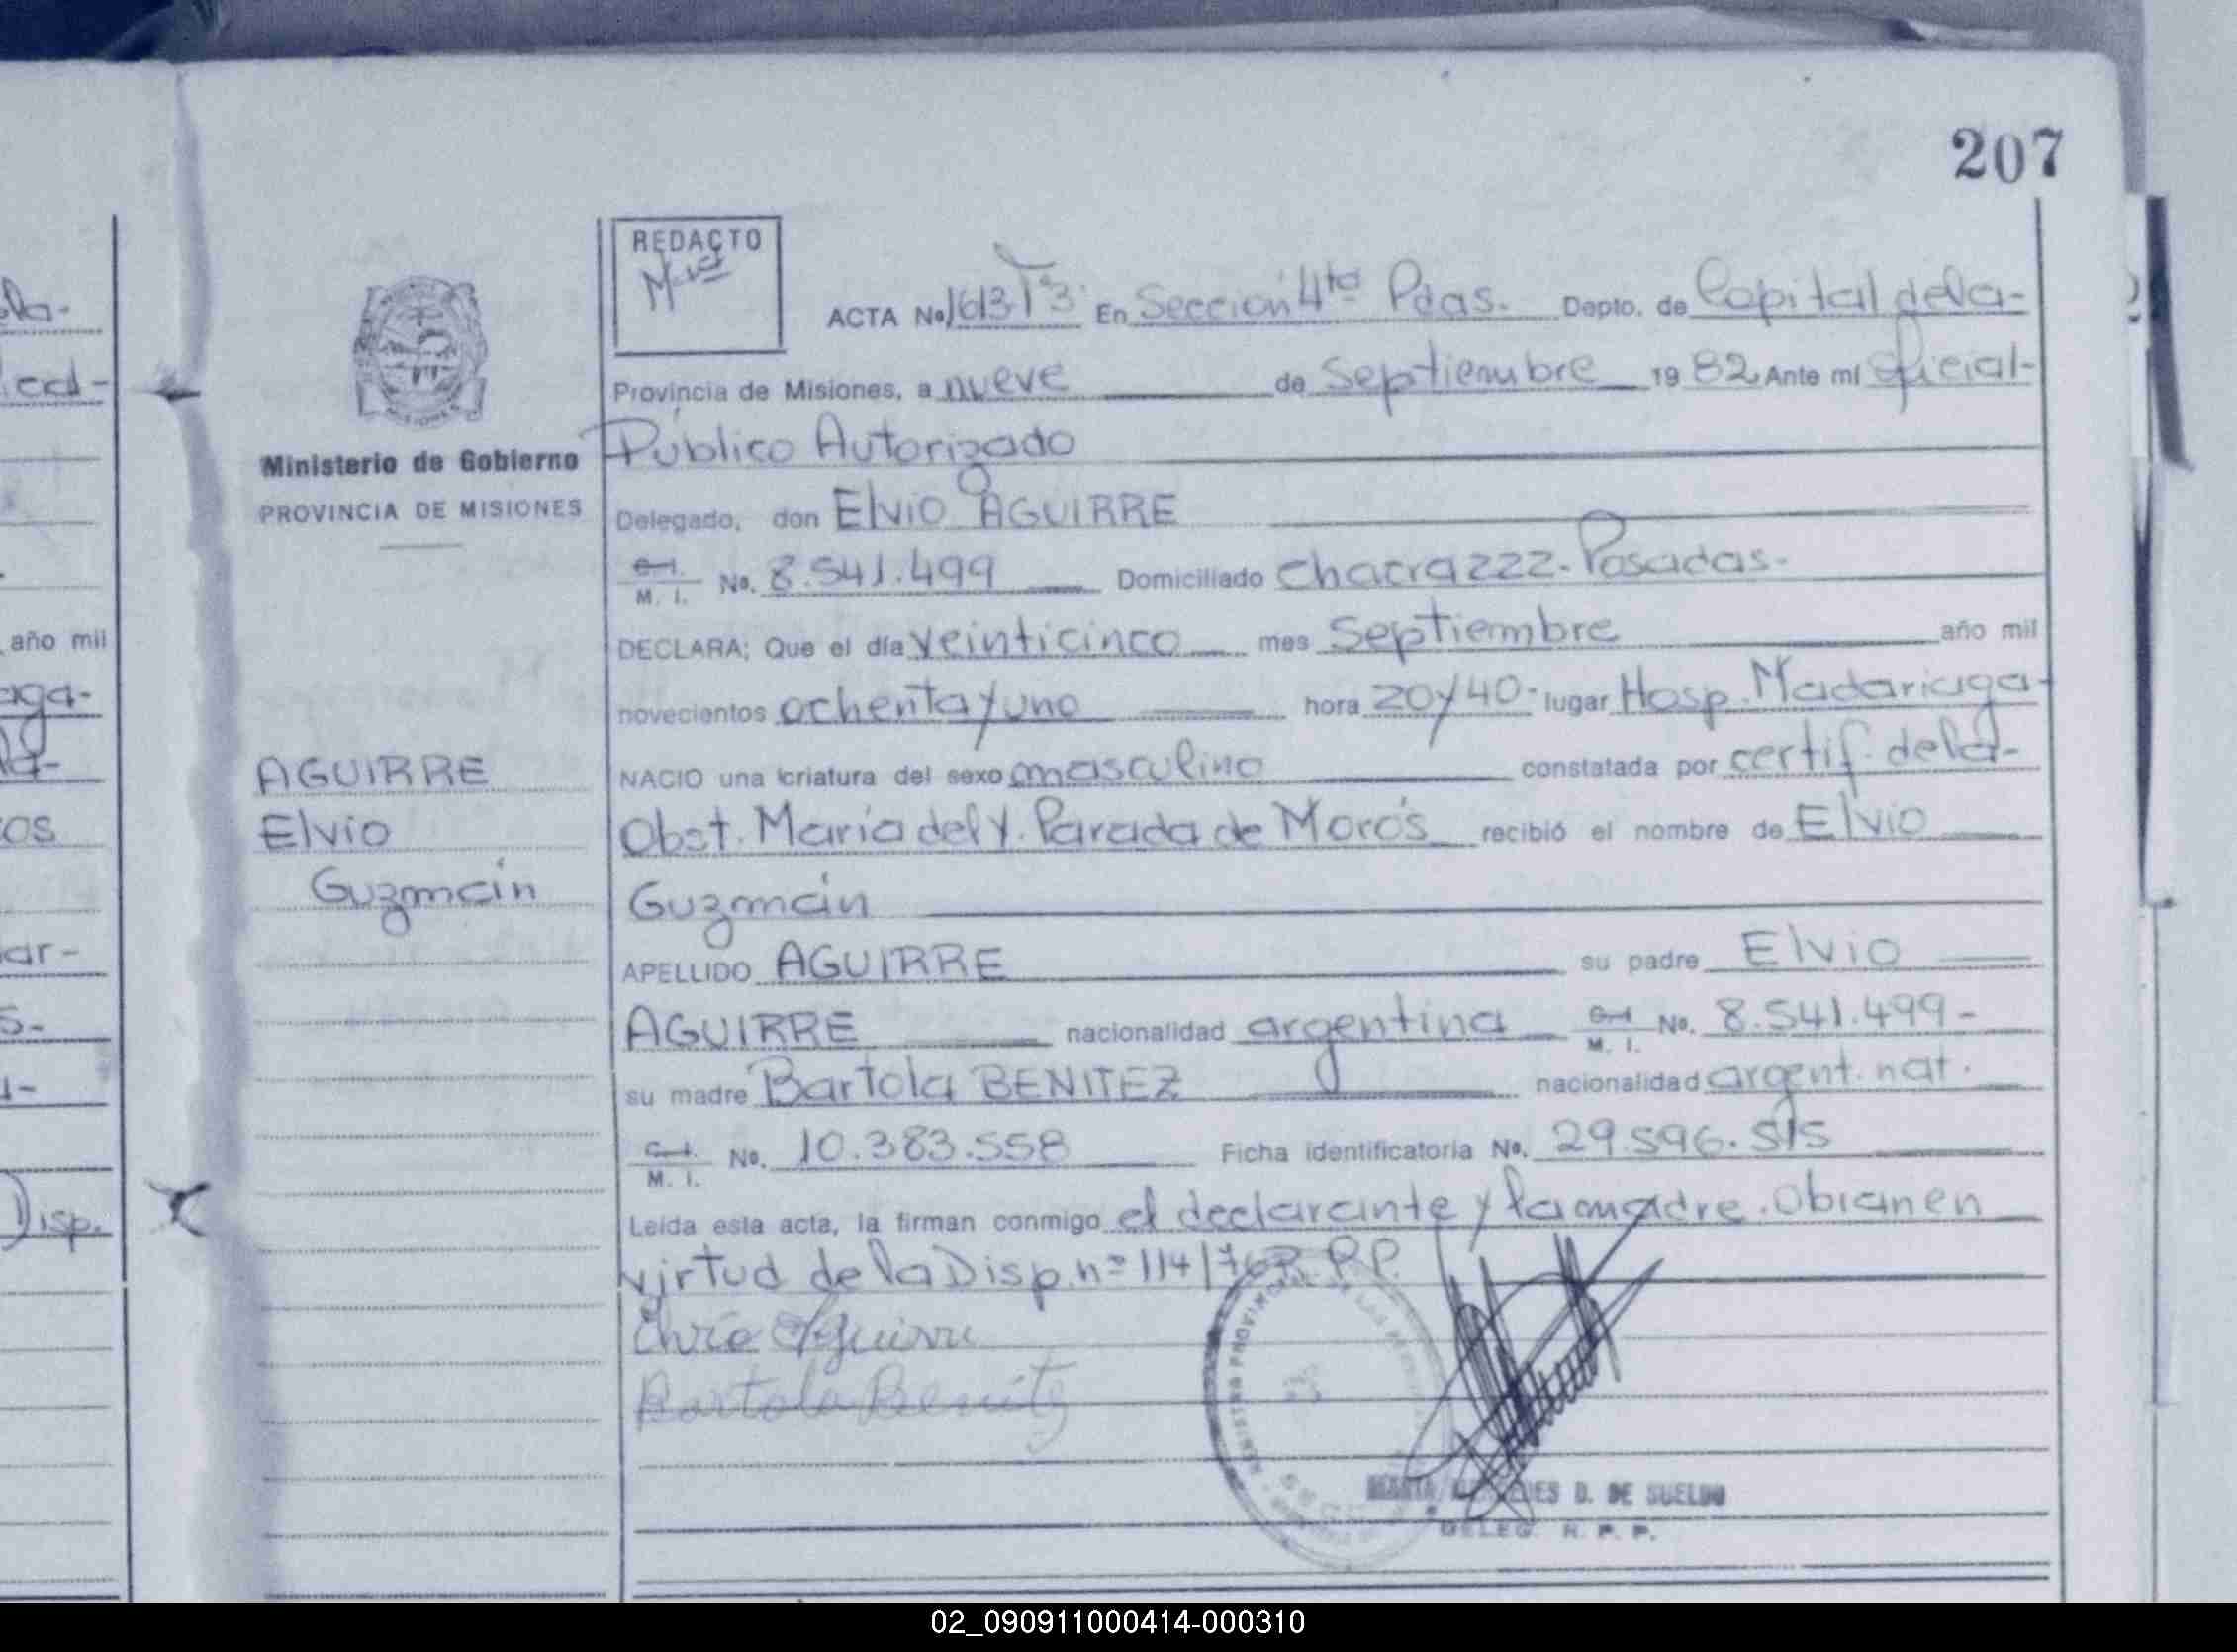 207
REDACTO
ACTA No. 1613 T°3° En Sección 4ta Pdas. Depto. de Capital de la-
Provincia de Misiones, a nueve de Septiembre 1982 Ante mí Oficial-
Público Autorizado
Ministerio de Gobierno
PROVINCIA DE MISIONES
Delegado, don Elvio AGUIRRE
C. I. M. I. No. 8.541.499 Domiciliado Chacra 222-Posadas-
DECLARA; Que el día veinticinco mes Septiembre año mil
novecientos ochenta y uno hora 20 y 40- lugar Hosp. Madariaga-
NACIO una criatura del sexo masculino constatada por certif. de la-
Obst. María del Y. Parada de Morós recibió el nombre de Elvio
Guzmán
AGUIRRE
Elvio
Guzmán
APELLIDO AGUIRRE su padre Elvio
AGUIRRE nacionalidad argentina C. I. M. I. No. 8.541.499-
su madre Bartola BENITEZ nacionalidad argent. nat.
C. I. M. I. No. 10.383.558 Ficha identificatoria No. 29.596.515
Leída esta acta, la firman conmigo el declarante y la madre. Obian en
virtud de la Disp. nº 114/76 R.P.P.
Elvio Aguirre
Bartola Benitez
D. DE SUELDO
DELEG. R. P. P.
año mil
Disp.
02_090911000414-000310